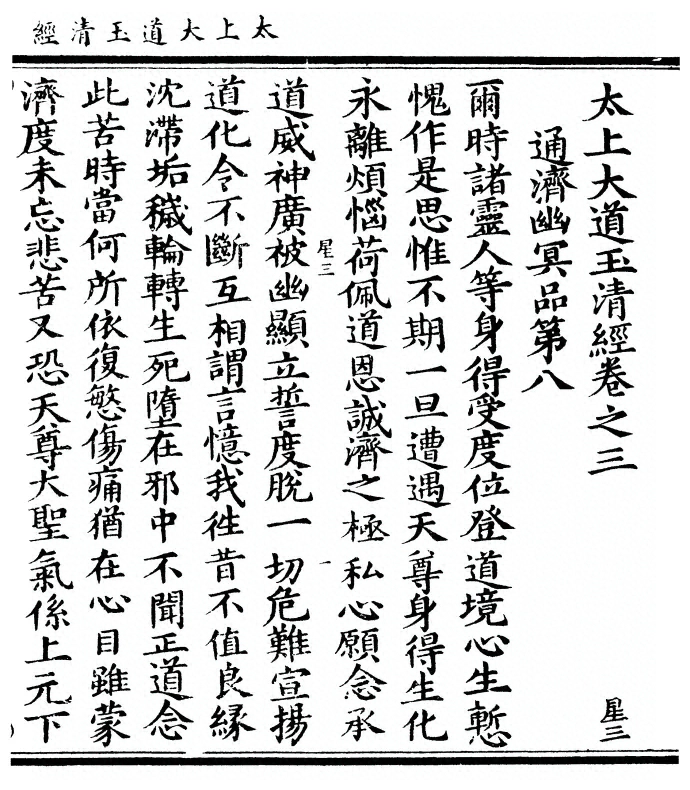 太上大道玉清經
太上大道玉清經卷之三
星三
通濟幽冥品第八
爾時諸靈人等身得受度位登道境心生慙
愧作是思惟不期一旦遭遇天尊身得生化
永離煩惱荷佩道恩誠濟之極私心願念承
星三
一
道威神廣被幽顯立誓度脫一切危難宣揚
道化令不斷互相謂言憶我徃昔不值良緣
沈滯垢穢輪轉生死墮在邪中不聞正道念
此苦時當何所依復慜傷痛猶在心目雖蒙
濟度未忘悲苦又恐天尊大聖氣係上元下